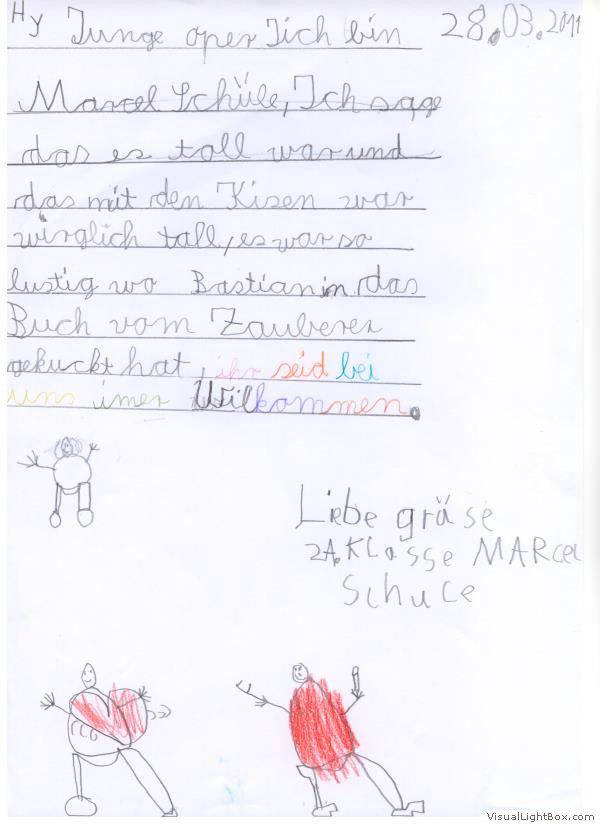 Hy Junge oper Jich bin 28.03.2011
Marcel Schüle, Ich sage
das es toll war und
das mit den Kisen war
wirglich tall, es war so
lustig wo Bastian in das
Buch vom Zauberer
gekuckt hat, ihr seid bei
uns imer Wilkommen.
Liebe gräse
2A. Klasse MARcel
Schule
FCB
VisualLightBox.com